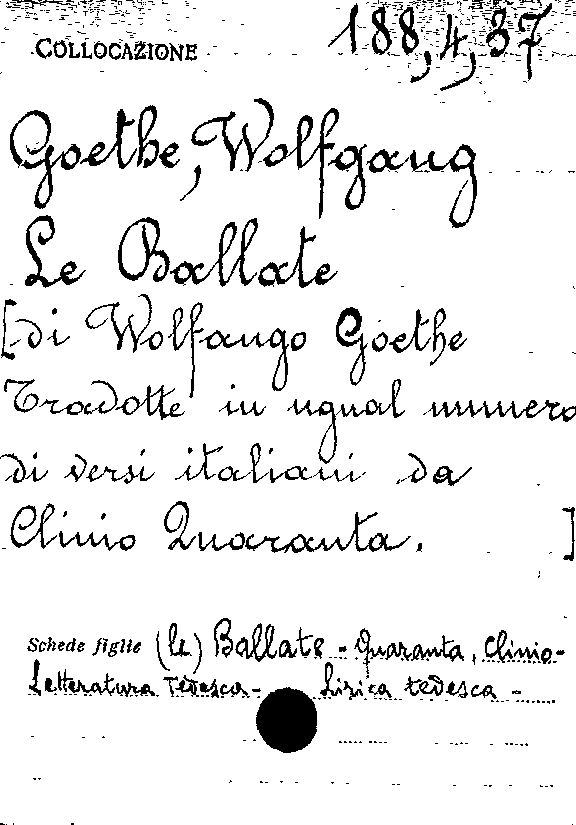 COLLOCAZIONE 188,4,37
Goethe, Wolfgang
Le Ballate
[di Wolfango Goethe
Tradotte in ugual numero
di versi italiani da
Clinio Quaranta. ]
Schede figlie (Le) Ballate - Quaranta, Clinio-
Letteratura Tedesca- Lirica tedesca -